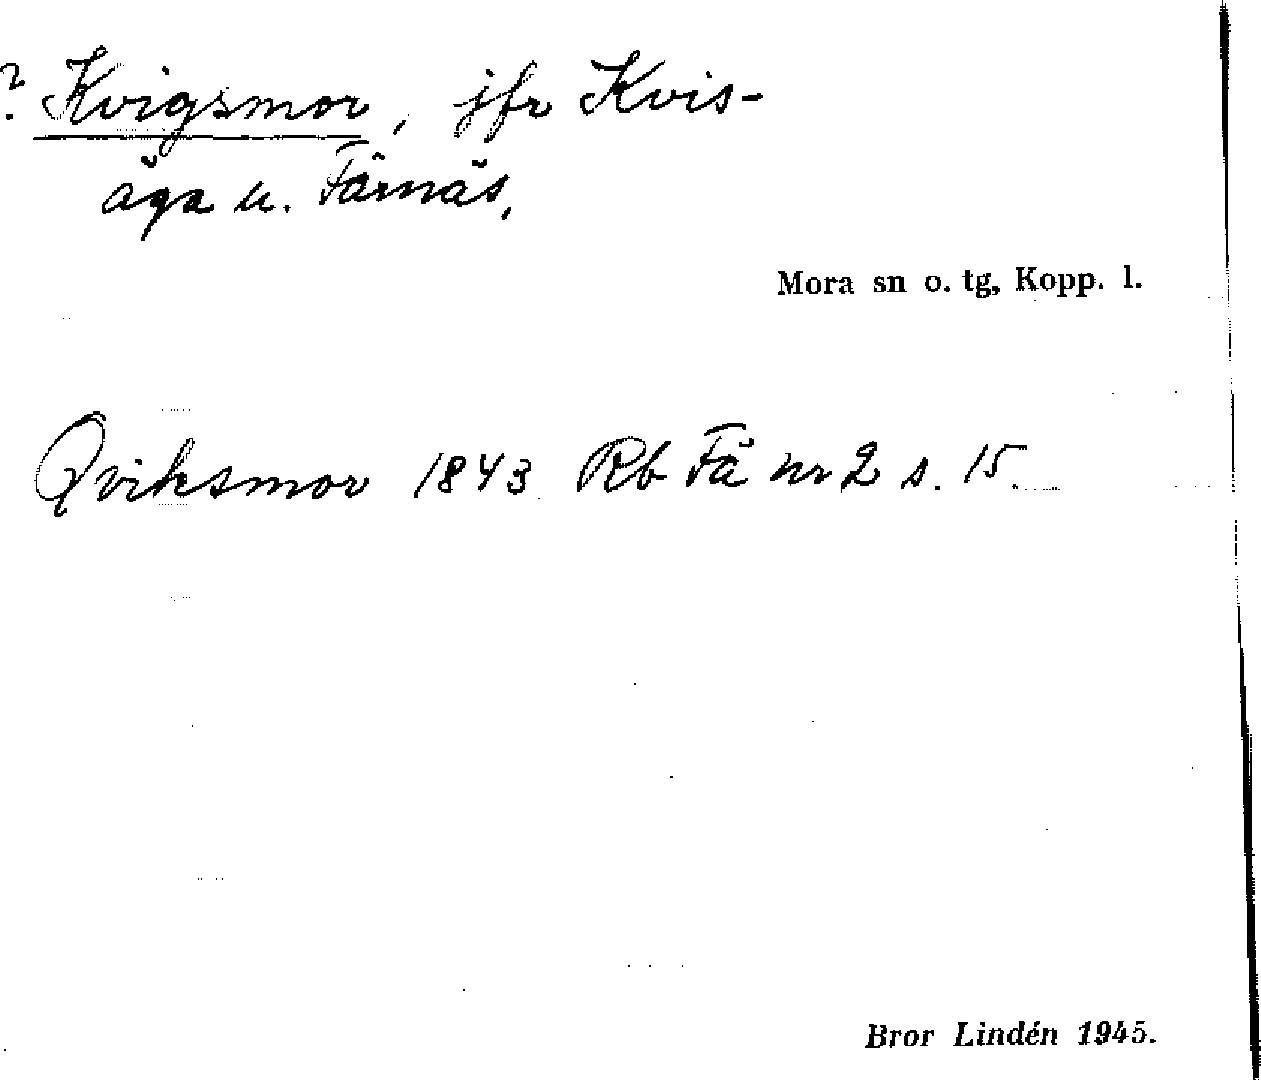 ? Kvigsmor, jfr Kvis-
äga u. Färnäs,
Mora sn o. tg, Kopp. l.
Qviksmor 1843 Rb Fä nr 2 s. 15.
Bror Lindén 1945.